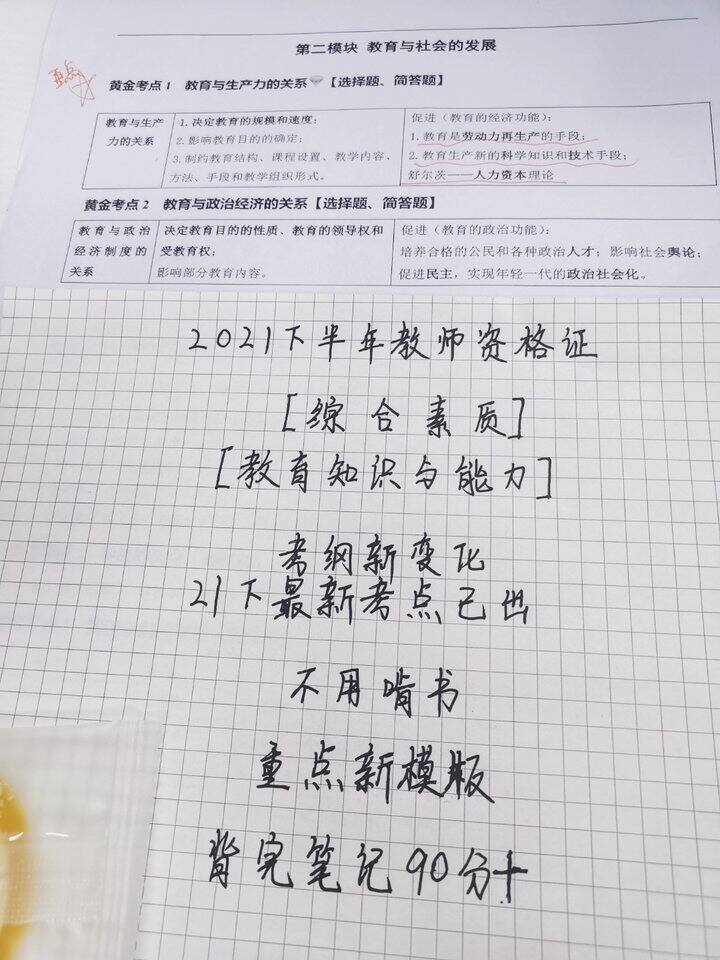 第二模块 教育与社会的发展
重点
黄金考点1 教育与生产力的关系【选择题、简答题】
教育与生产力的关系
1.决定教育的规模和速度;
2.影响教育目的的确定;
3.制约教育结构、课程设置、教学内容、
方法、手段和教学组织形式。
促进(教育的经济功能):
1.教育是劳动力再生产的手段;
2.教育生产新的科学知识和技术手段;
舒尔茨——人力资本理论
黄金考点2 教育与政治经济的关系【选择题、简答题】
教育与政治
经济制度的
关系
决定教育目的的性质、教育的领导权和
受教育权;
影响部分教育内容。
促进(教育的政治功能):
培养合格的公民和各种政治人才;影响社会舆论;
促进民主,实现年轻一代的政治社会化。
2021下半年教师资格证
[综合素质]
[教育知识与能力]
考纲新变化
21下最新考点已出
不用啃书
重点新模版
背完笔记90分+